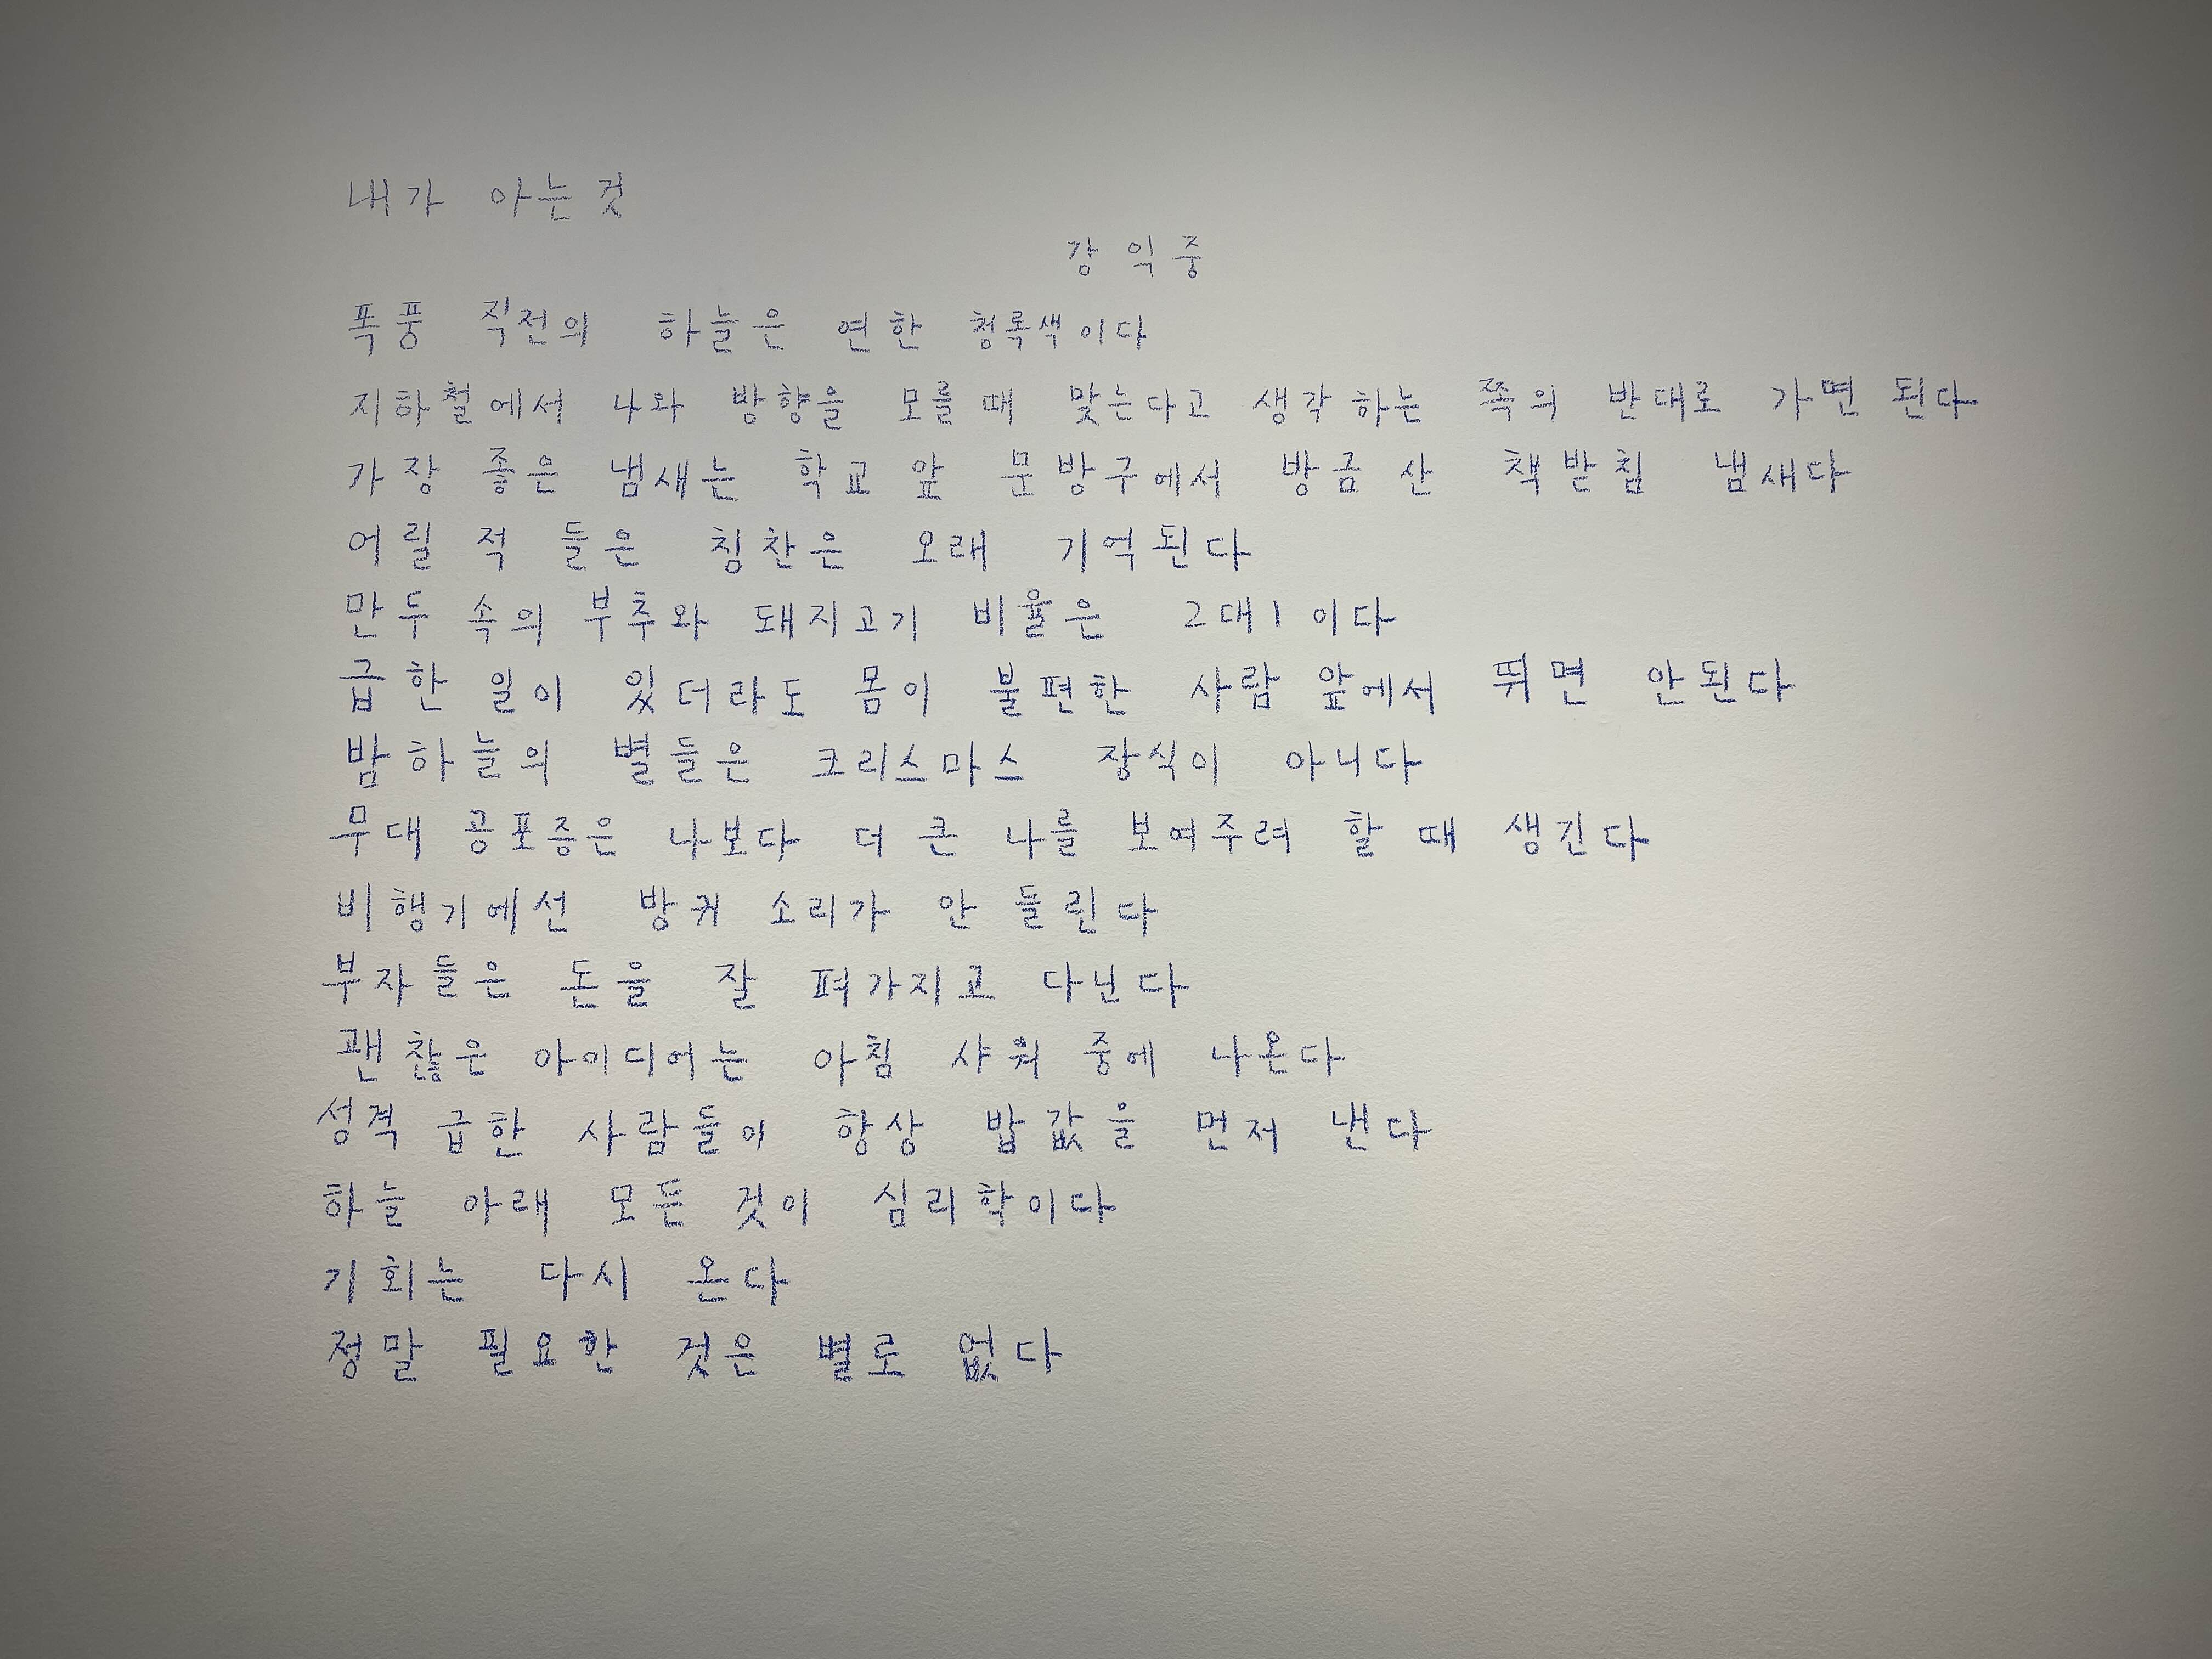 내가 아는것
강익중
폭풍 직전의 하늘은 연한 청록색이다
지하철에서 나와 방향을 모를 때 맞는다고 생각하는 쪽의 반대로 가면 된다
가장 좋은 냄새는 학교 앞 문방구에서 방금 산 책받침 냄새다
어릴 적 들은 칭찬은 오래 기억된다
만두 속의 부추와 돼지고기 비율은 2대1이다
급한 일이 있더라도 몸이 불편한 사람 앞에서 뛰면 안된다
밤하늘의 별들은 크리스마스 장식이 아니다
무대 공포증은 나보다 더 큰 나를 보여주려 할 때 생긴다
비행기에선 방귀 소리가 안 들린다
부자들은 돈을 잘 펴가지고 다닌다
괜찮은 아이디어는 아침 샤워 중에 나온다
성격 급한 사람들이 항상 밥값을 먼저 낸다
하늘 아래 모든 것이 심리학이다
기회는 다시 온다
정말 필요한 것은 별로 없다